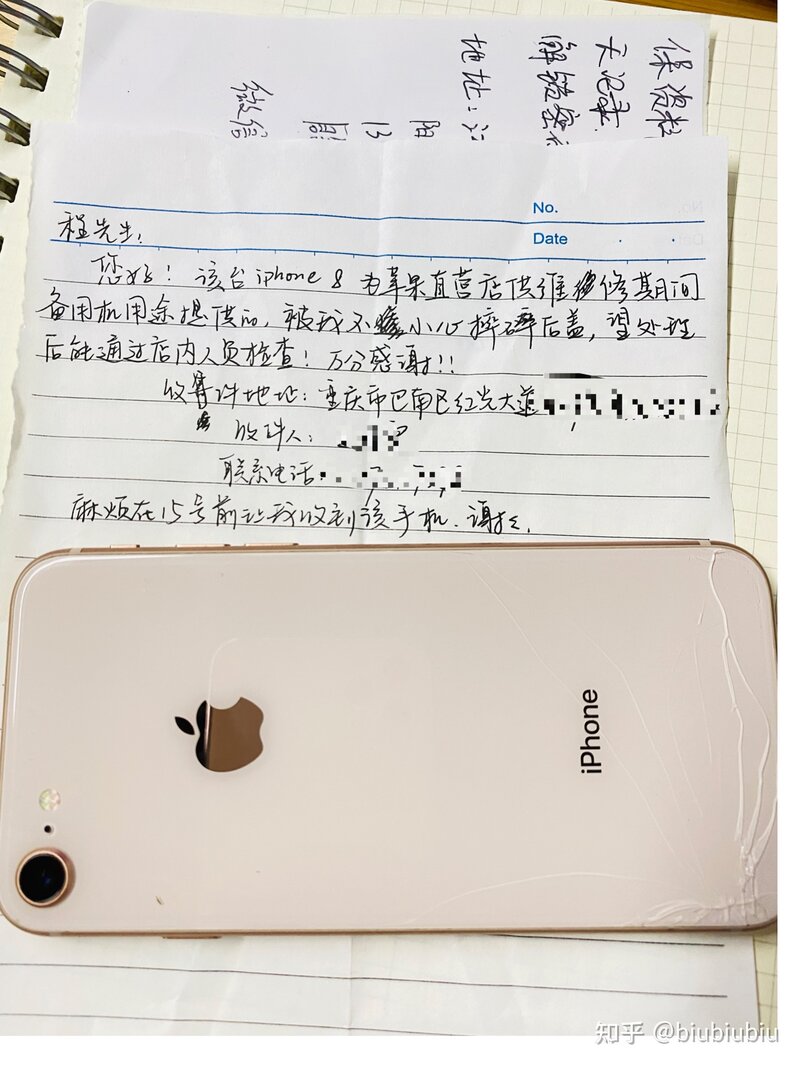 保资料
天记录
解锁密
地址：江
阳
13
微信
No.
Date
程先生，
您好！该台iphone 8 为苹果直营店供维修期间
备用机用途提供的，被我不小心摔碎后盖，望处理
后能通过店内人员检查！万分感谢！！
收寄件地址：重庆市巴南区红光大道
收件人：
联系电话：
麻烦在15号前让我收到该手机．谢谢．
iPhone
知乎 @biubiubiu